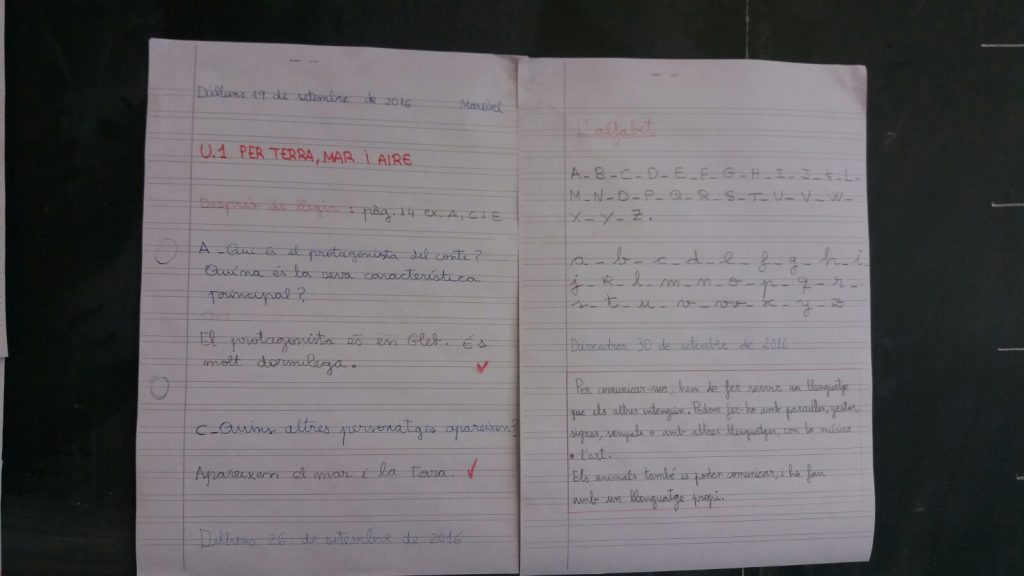 Dilluns 19 de setembre de 2016 Maribel
U.1 PER TERRA, MAR i AIRE
Després de llegir : pàg. 14 ex. A, C i E
A - Qui és el protagonista del conte?
Quina és la seva característica
principal?
El protagonista és en Glet. És
molt dormilega.
C - Quins altres personatges apareixen?
Apareixen el mar i la terra.
Dilluns 26 de setembre de 2016
L'alfabet
A - B - C - D - E - F - G - H - I - J - K - L -
M - N - O - P - Q - R - S - T - U - V - W -
X - Y - Z.
a - b - c - d - e - f - g - h - i
j - k - l - m - n - o - p - q - r -
s - t - u - v - w - x - y - z
Divendres 30 de setembre de 2016
Per comunicar-nos, hem de fer servir un llenguatge
que els altres entenguin. Podem fer-ho amb paraules, gestos,
signes, senyals o amb altres llenguatges, con la música
o l'art.
Els animals també es poden comunicar, i ho fan
amb un llenguatge propi.